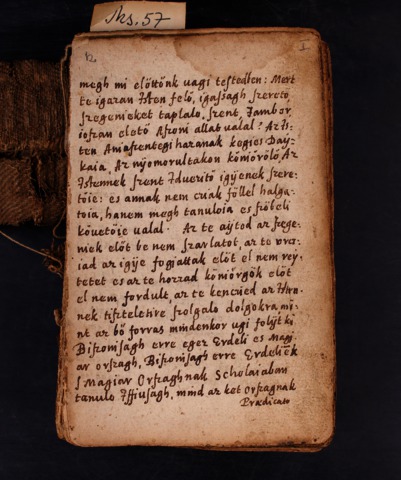 Ms. 57
12
I
megh mi előttőnk uagi testedben: Mert
te igazan Isten felő, igassagh szerető,
szegenieket taplalo, szent, Jambor,
iozan eletö Aszoni allat ualal: Az Is-
ten Aniaszentegihazanak kegies Day-
kaia, Az nyomorultakon kőniőrőlő, Az
Istennek szent Iduezitő igyenek szere-
tőie: es annak nem cziak füllel halga-
toia, hanem megh tanuloia es sziöbeli
kőuetőie ualal. Az te aytod az szege-
niek elöt be nem szarlatot, az te uras-
iad az igije fogjattak elöt el nem rey-
tetet es az te horzad kőniőrgők elöt
el nem fordult, az te kenczied az Isten-
nek tisztelesire szolgalo dolgokra, mi-
nt az bő forras mindenkor ugi folyt ki
Bizonisagh erre egez Erdeli es Magi-
ar orszagh, Bizonisagh erre Erdeliek
s Magiar Orszaghnak Scholaiaban
tanulo Iffiusagh, mind az ket orszagnak
Prædicato